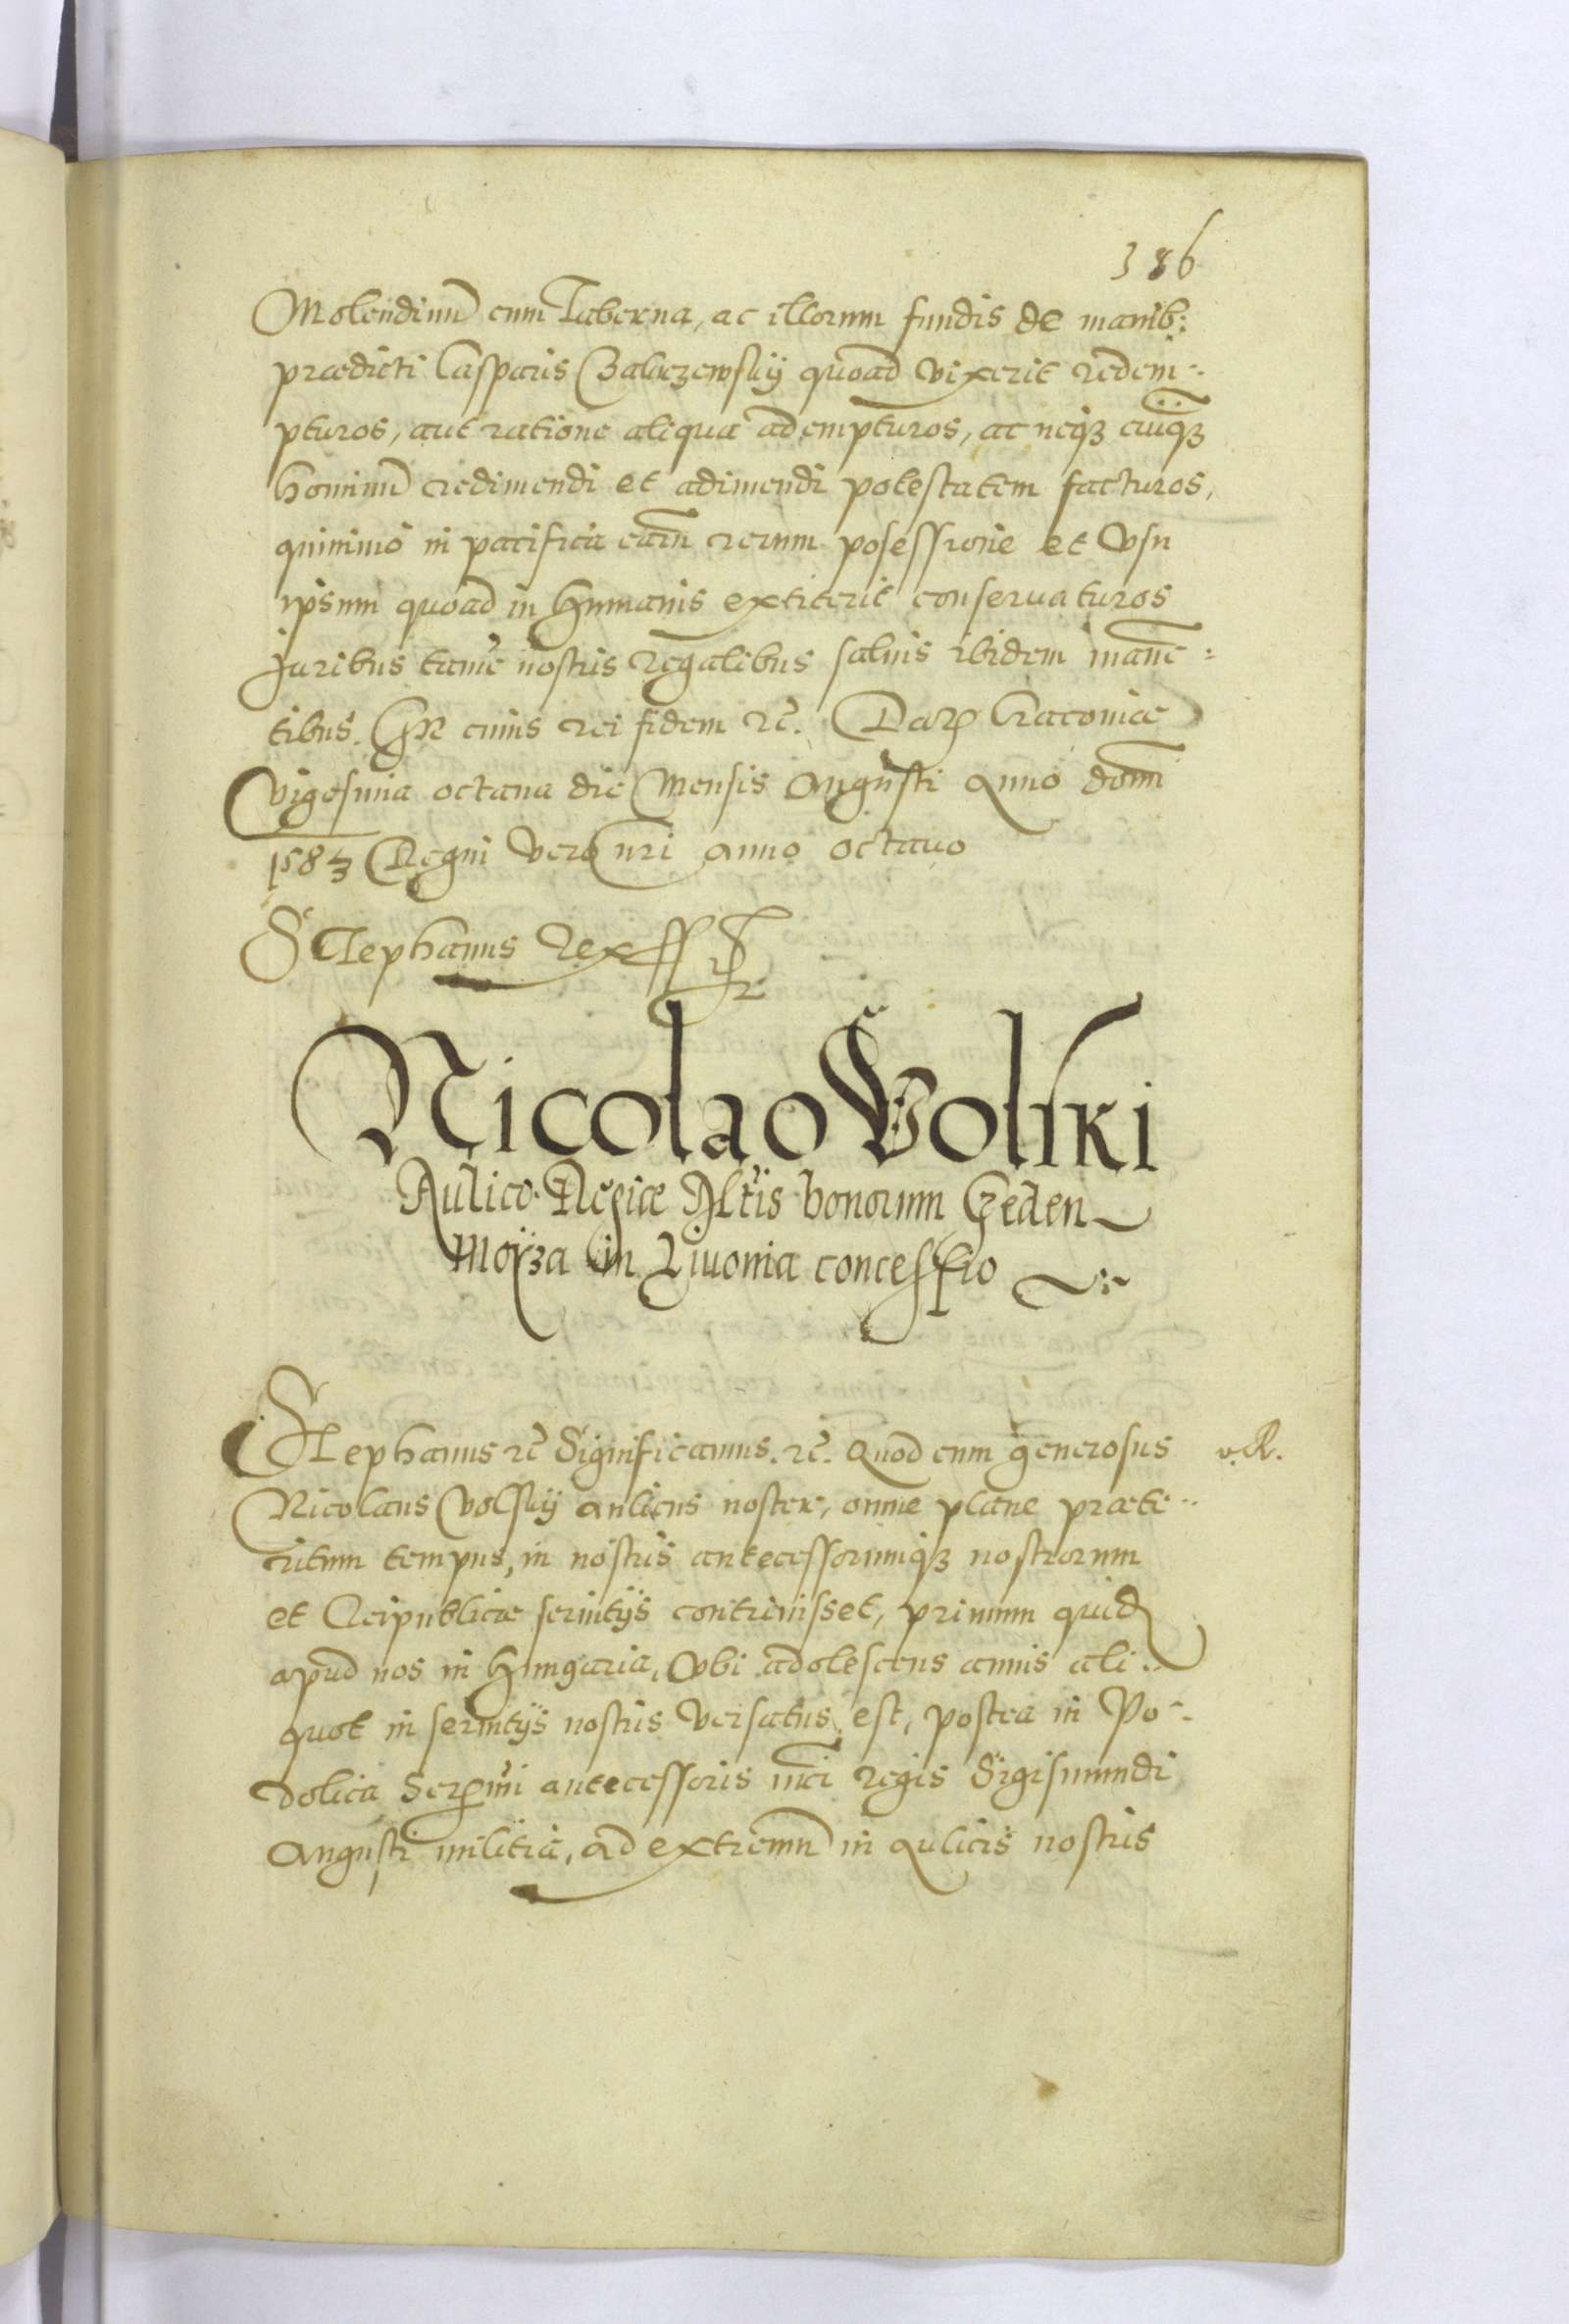 386
Molendinū cum Taberna, ac illorum fundis de manib:
prædicti Casparis Czaluczewskij quoad vixerit redem-
pturos, aut ratione aliqua adempturos, ac neqȝ cuiqȝ
hominū redimendi et adimendi potestatem facturos,
quinimo in pacifica earū rerum posessione et Vsu
ipsum quoad in humanis extiterit conseruaturos
Juribus tamē nostris regalibus saluis ibidem manē-
tibus. In cuius rei fidem rc̄. Datȝ Cracouiæ
Vigesima octaua die Mensis Augusti Anno domī
1583 Regni vero nri anno octauo
Stephanus Rex ss
Nicolao Volski
Aulico Regiæ Mtis bonorum Czeden
Moyza in Liuonia concessio
Stephanus rc̄ Significamus. rc̄. Quod cum generosus
v. R.
Nicolaus Volskij aulicus noster, omne plane præte-
ritum tempus, in nostris antecessorumqȝ nostrorum
et Reipublicæ seruitijs contriuisset, primum quidē
apud nos in Hungaria, Vbi adolescens annis ali-
quot in seruitijs nostris versatus est, postea in Po-
dolica Sermi antecessoris nrī regis Sigismundi
Augusti militia, ad extremū in aulicis nostris